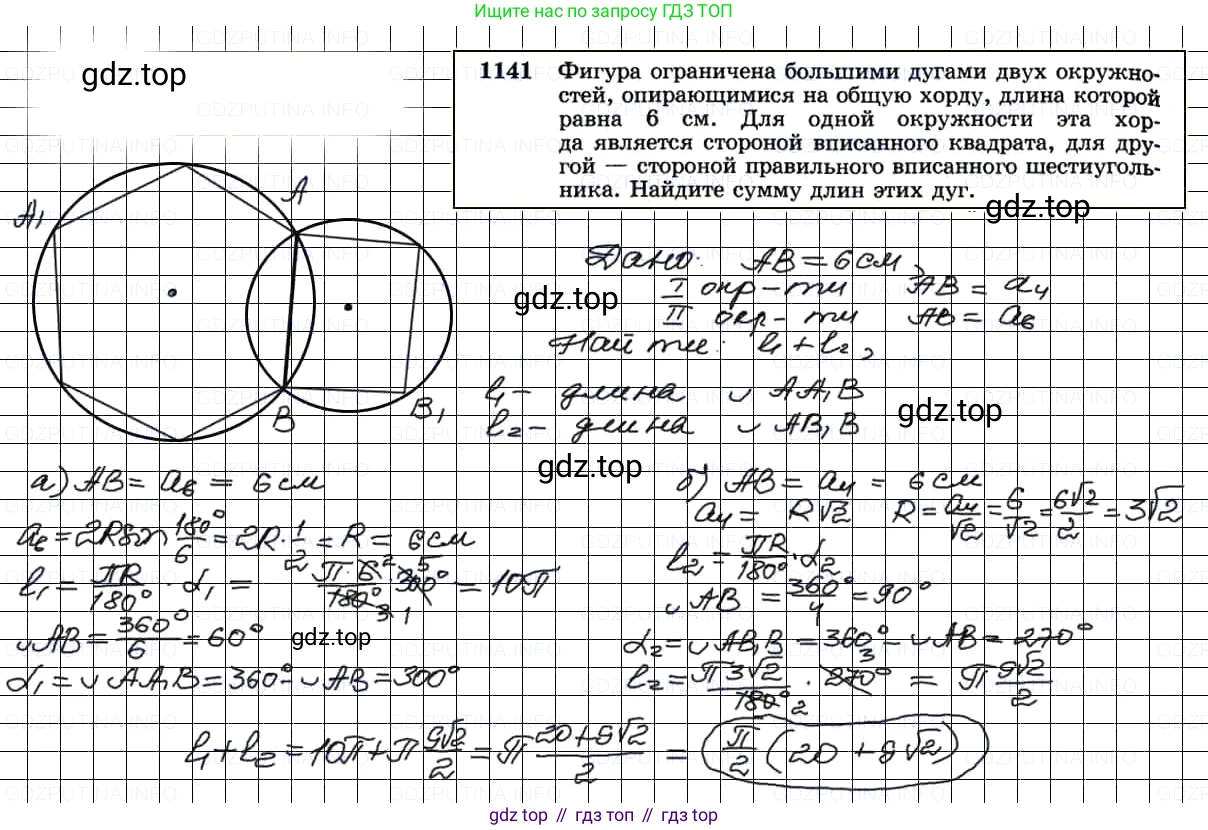 Ищите нас по запросу ГДЗ ТОП
gdz.top
1141 Фигура ограничена большими дугами двух окружно-
стей, опирающимися на общую хорду, длина которой
равна 6 см. Для одной окружности эта хор-
да является стороной вписанного квадрата, для дру-
гой — стороной правильного вписанного шестиуголь-
ника. Найдите сумму длин этих дуг.
gdz.top
A₁
A
B
B₁
Дано: AB = 6 см,
I окр-ти AB = a₄
gdz.top
II окр-ти AB = a₆
Найти: l₁ + l₂,
l₁ - длина ◡ AA₁B
l₂ - длина ◡ AB₁B
gdz.top
gdz.top
а) AB = a₆ = 6 см
a₆ = 2R sin 180°/6 = 2R · 1/2 = R = 6 см
l₁ = πR/180° · α₁ = π·6/180° · 300° = 10π
◡AB = 360°/6 = 60°
gdz.top
α₁ = ◡AA₁B = 360° - ◡AB = 300°
б) AB = a₄ = 6 см
a₄ = R√2 R = a₄/√2 = 6/√2 = 6√2/2 = 3√2
l₂ = πR/180° · α₂
◡AB = 360°/4 = 90°
α₂ = ◡AB₁B = 360° - ◡AB = 270°
l₂ = π3√2/180° · 270° = π 9√2/2
l₁ + l₂ = 10π + π 9√2/2 = π 20+9√2/2 = π/2 (20 + 9√2)
gdz.top // гдз топ // gdz.top